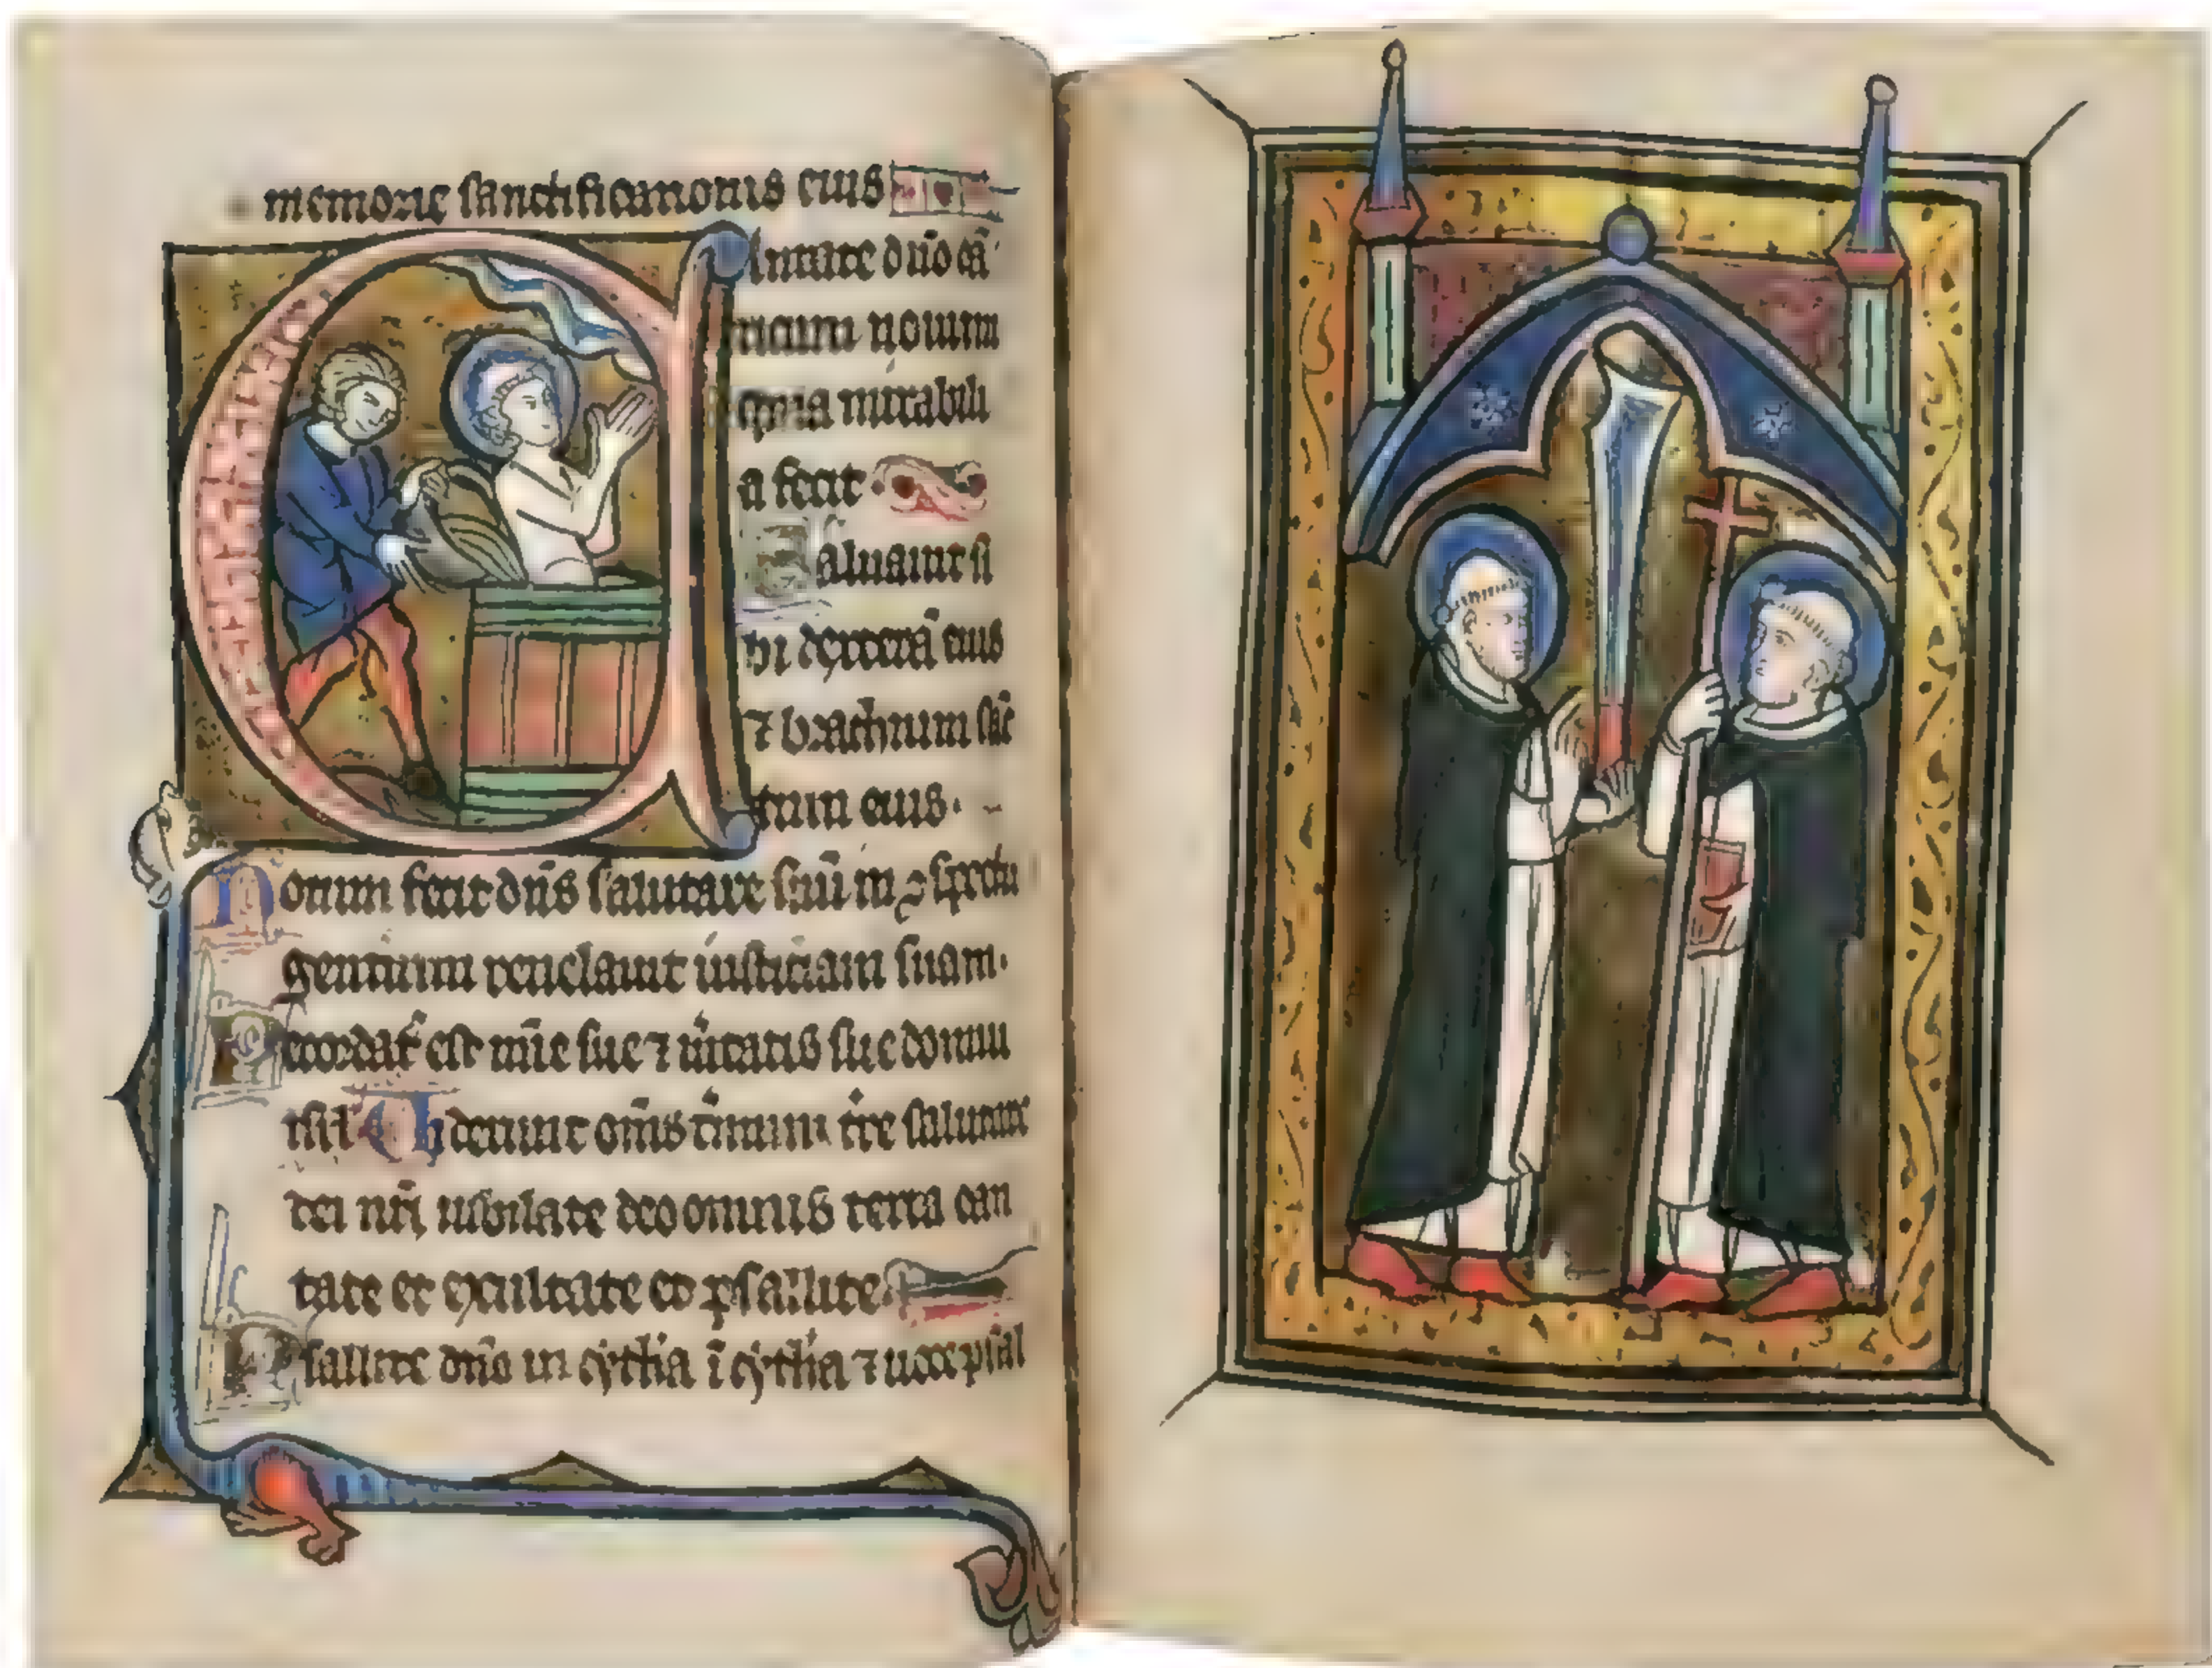 memorie sanctificationis eius
Cantate dño cã
ticum nouum
quia mirabili
a fecit
Saluauit si
bi dexterã eius
⁊ brachium sãc
tum eius.
Notum fecit dñs salutare suũ in ɔspectu
gentium reuelauit iusticiam suam.
Recordat᷑ est mĩe sue ⁊ ũitatis sue domui
isrl̃ Uiderunt om̃s t̃mini t̃re salutare
dei nr̃i iubilate deo omnis terra can
tate et exultate et psallite
Psallite dño in cythã ĩ cythã ⁊ uoce psal